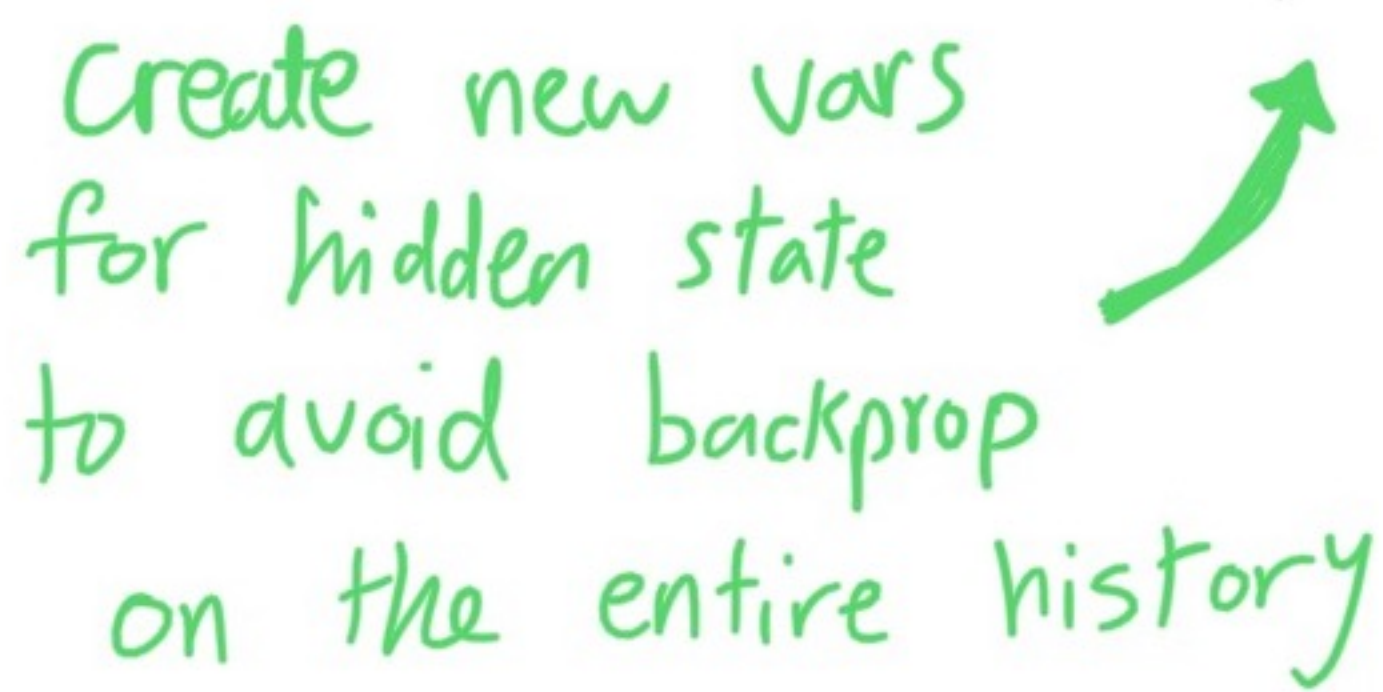 Create new vars
for hidden state
to avoid backprop
on the entire history